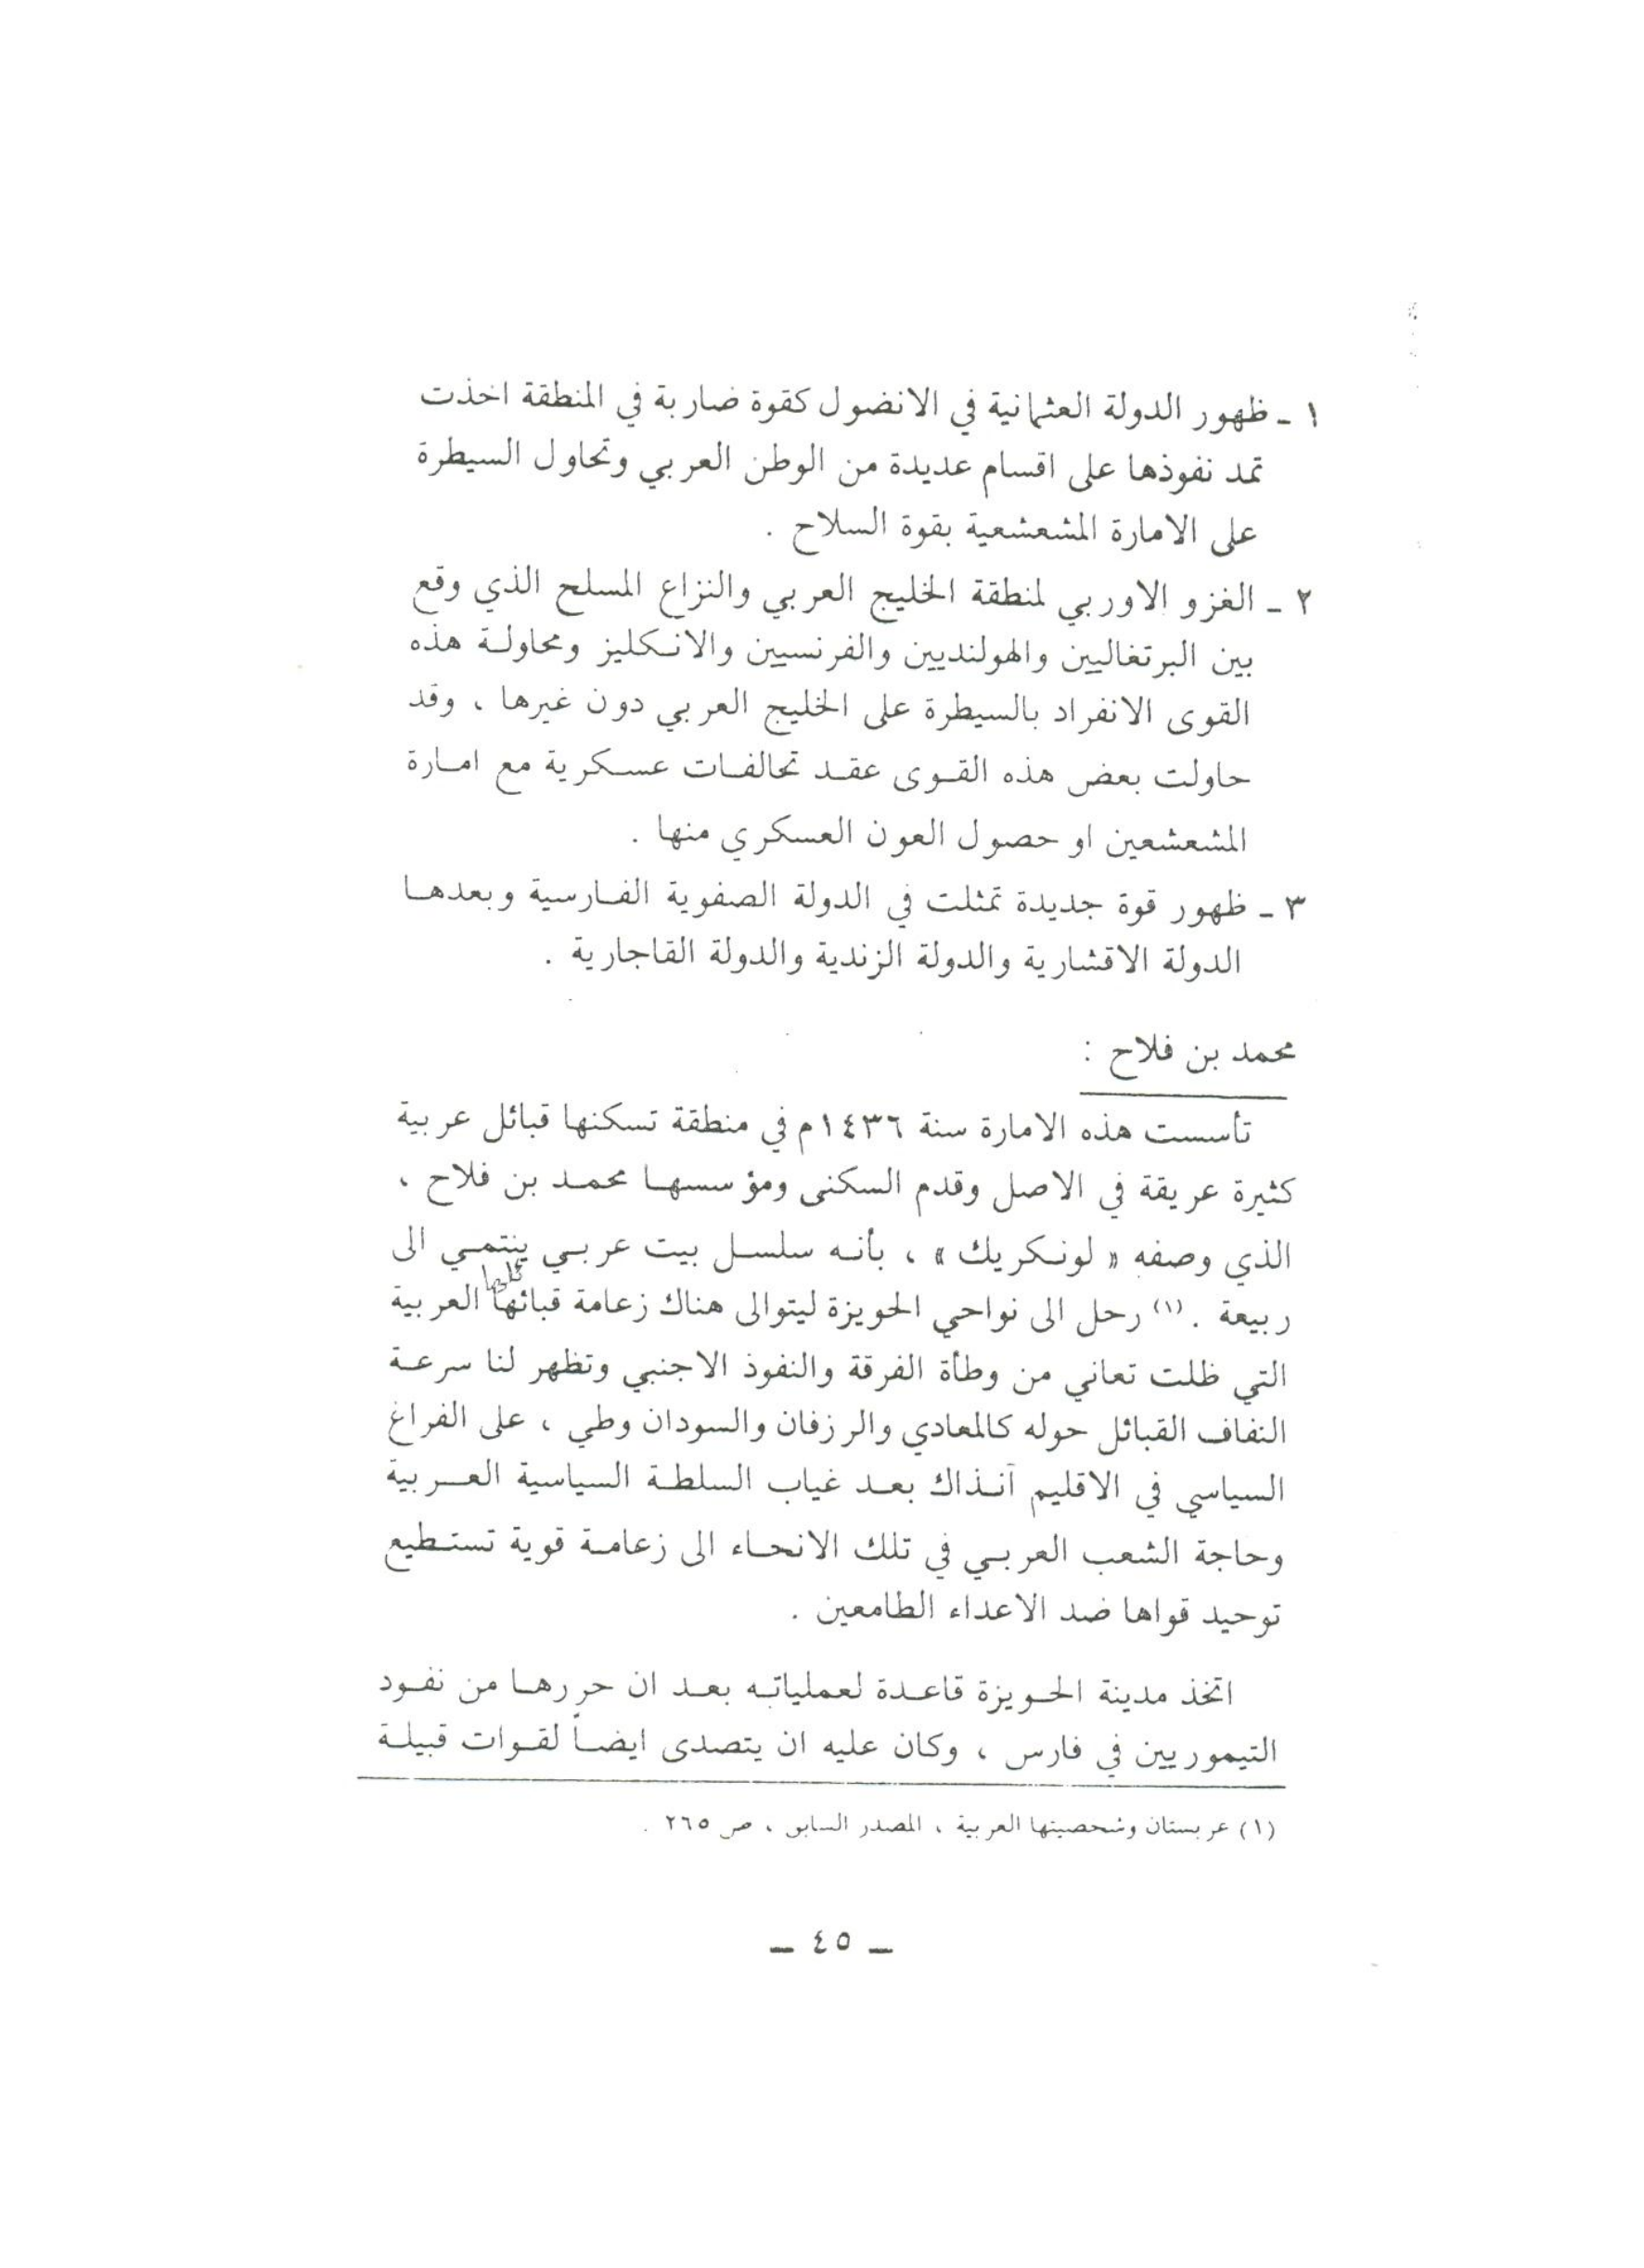 ١ ـ ظهور الدولة العثمانية في الانضول كقوة ضاربة في المنطقة اخذت
تمد نفوذها على اقسام عديدة من الوطن العربي وتحاول السيطرة
على الامارة المشعشعية بقوة السلاح .
٢ ـ الغزو الاوربي لمنطقة الخليج العربي والنزاع المسلح الذي وقع
بين البرتغاليين والهولنديين والفرنسيين والانكليز ومحاولة هذه
القوى الانفراد بالسيطرة على الخليج العربي دون غيرها ، وقد
حاولت بعض هذه القوى عقد تحالفات عسكرية مع امارة
المشعشعين او حصول العون العسكري منها .
٣ ـ ظهور قوة جديدة تمثلت في الدولة الصفوية الفارسية وبعدها
الدولة الاقشارية والدولة الزندية والدولة القاجارية .
محمد بن فلاح :
تأسست هذه الامارة سنة ١٤٣٦م في منطقة تسكنها قبائل عربية
كثيرة عريقة في الاصل وقدم السكنى ومؤسسها محمد بن فلاح ،
الذي وصفه « لونكريك » ، بأنه سلسل بيت عربي ينتمي الى
ربيعة . (١) رحل الى نواحي الحويزة ليتوالى هناك زعامة قبائها العربية
التي ظلت تعاني من وطأة الفرقة والنفوذ الاجنبي وتظهر لنا سرعة
التفاف القبائل حوله كالمعادي والرزفان والسودان وطي ، على الفراغ
السياسي في الاقليم آنذاك بعد غياب السلطة السياسية العربية
وحاجة الشعب العربي في تلك الانحاء الى زعامة قوية تستطيع
توحيد قواها ضد الاعداء الطامعين .
اتخذ مدينة الحويزة قاعدة لعملياته بعد ان حررها من نفود
التيموريين في فارس ، وكان عليه ان يتصدى ايضاً لقوات قبيلة
(١) عربستان وشخصيتها العربية ، المصدر السابق ، ص ٢٦٥ .
ـ ٤٥ ـ